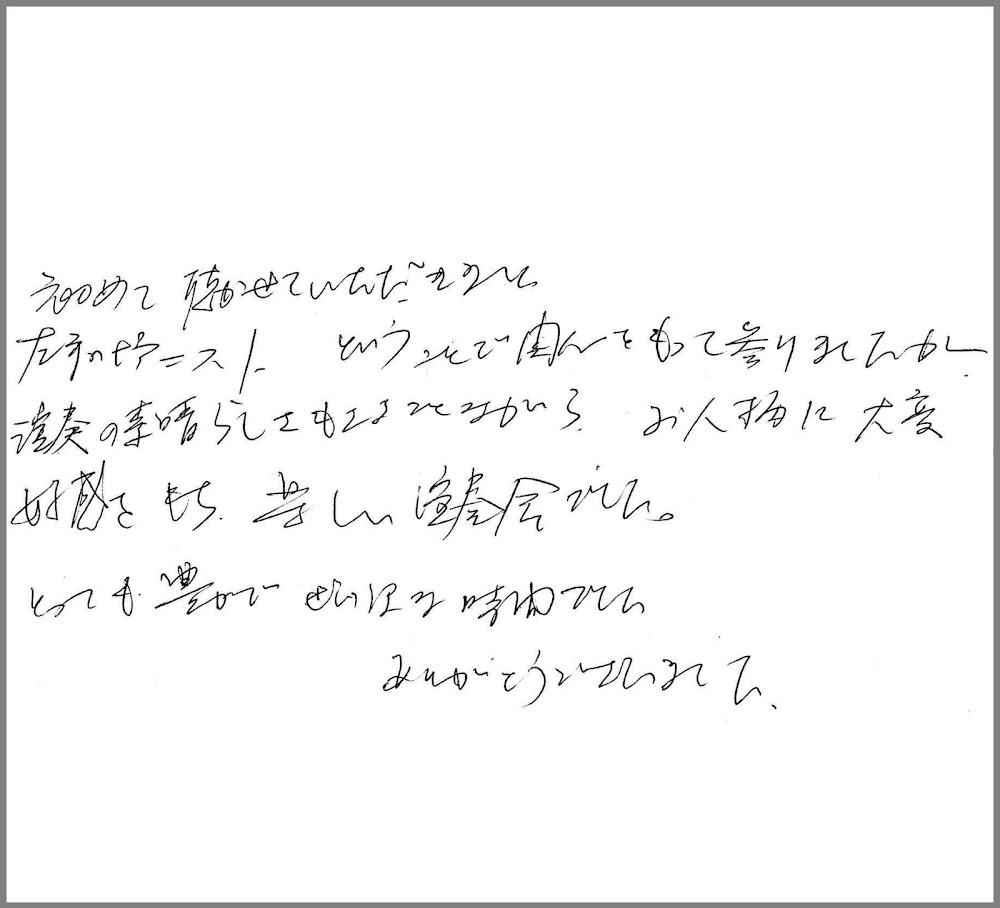 初めて聴かせていただきました
左手のピアニスト、ということで関心をもって参りましたが、
演奏の素晴らしさもさることながら、お人柄に大変
好感をもち、楽しい演奏会でした。
とっても豊かでぜい沢な時間でした
ありがとうございました、